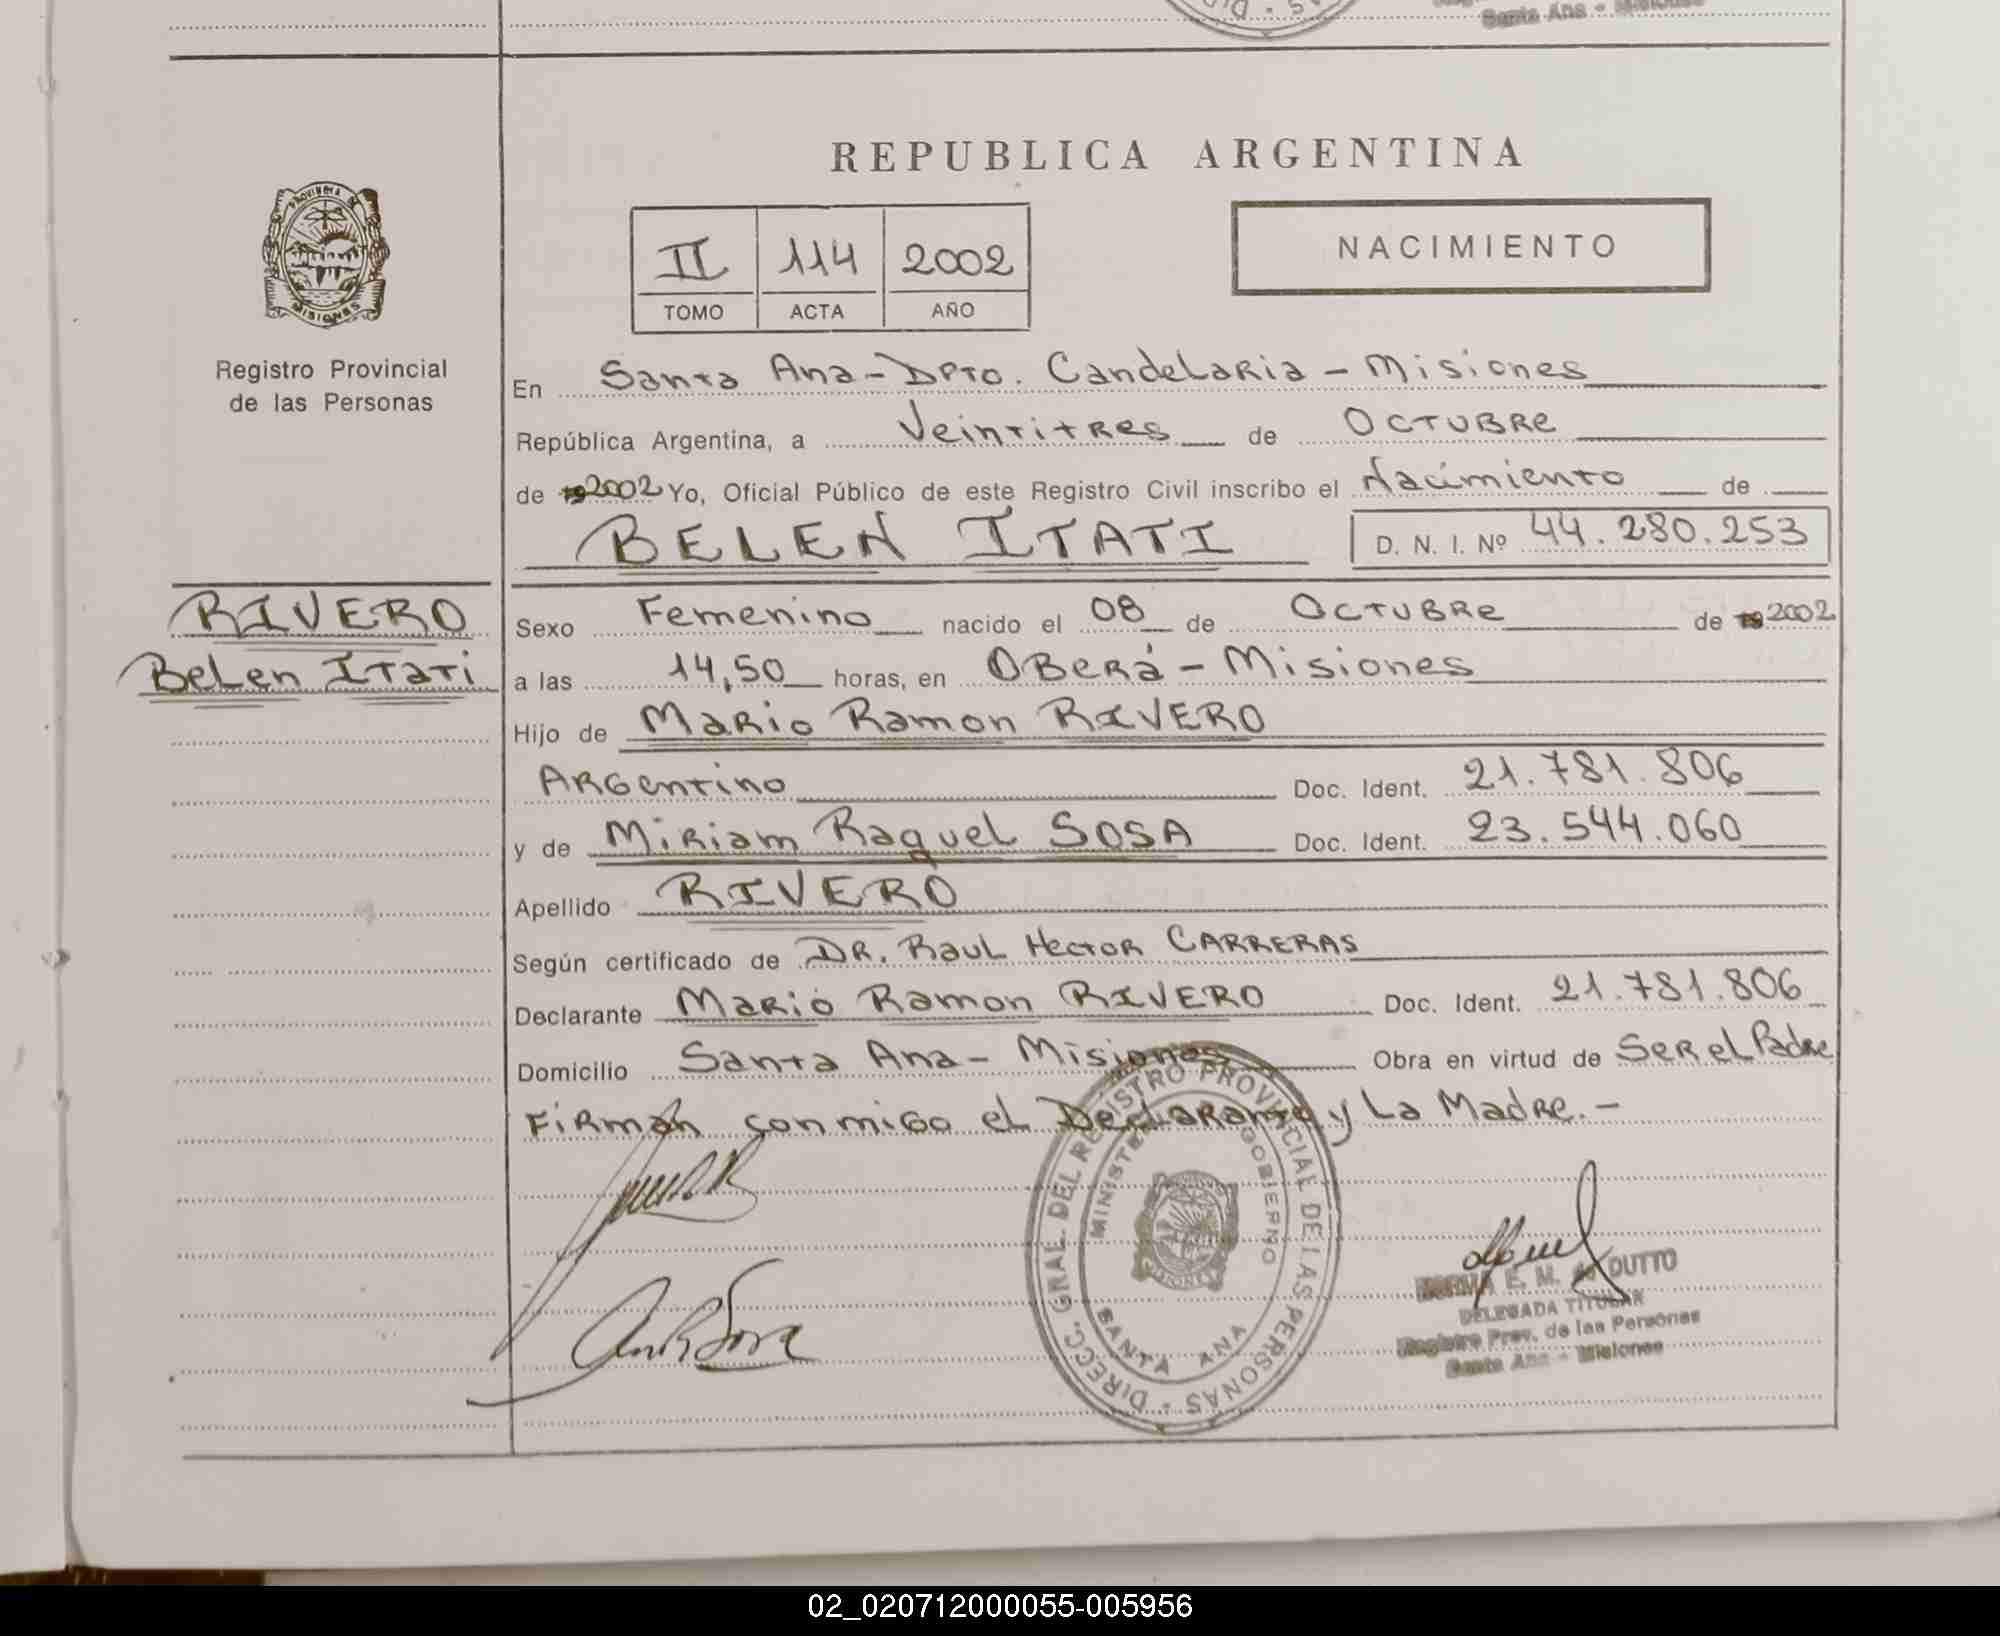 Santa Ana - Misiones
REPUBLICA ARGENTINA
PROVINCIA DE
MISIONES
Registro Provincial
de las Personas
II 114 2002
TOMO ACTA AÑO
NACIMIENTO
En Santa Ana - Dpto. Candelaria - Misiones
República Argentina, a Veintitres de Octubre
de 19 2002 Yo, Oficial Público de este Registro Civil inscribo el Nacimiento de
BELEN ITATI D. N. I. Nº 44.280.253
RIVERO
Belen Itati
Sexo Femenino nacido el 08 de Octubre de 19 2002
a las 14,50 horas, en Oberá - Misiones
Hijo de Mario Ramon RIVERO
Argentino Doc. Ident. 21.781.806
y de Miriam Raquel SOSA Doc. Ident. 23.544.060
Apellido RIVERO
Según certificado de DR. Raul Hector CARRERAS
Declarante Mario Ramon RIVERO Doc. Ident. 21.781.806
Domicilio Santa Ana - Misiones Obra en virtud de Ser el Padre
Firman conmigo el Declarante y La Madre. -
DIRECC. GRAL. DEL REGISTRO PROVINCIAL DE LAS PERSONAS
MINISTERIO GOBIERNO
MISIONES
SANTA ANA
E. M. de DUTTO
DELEGADA TITULAR
Registro Prov. de las Personas
Santa Ana - Misiones
02_020712000055-005956